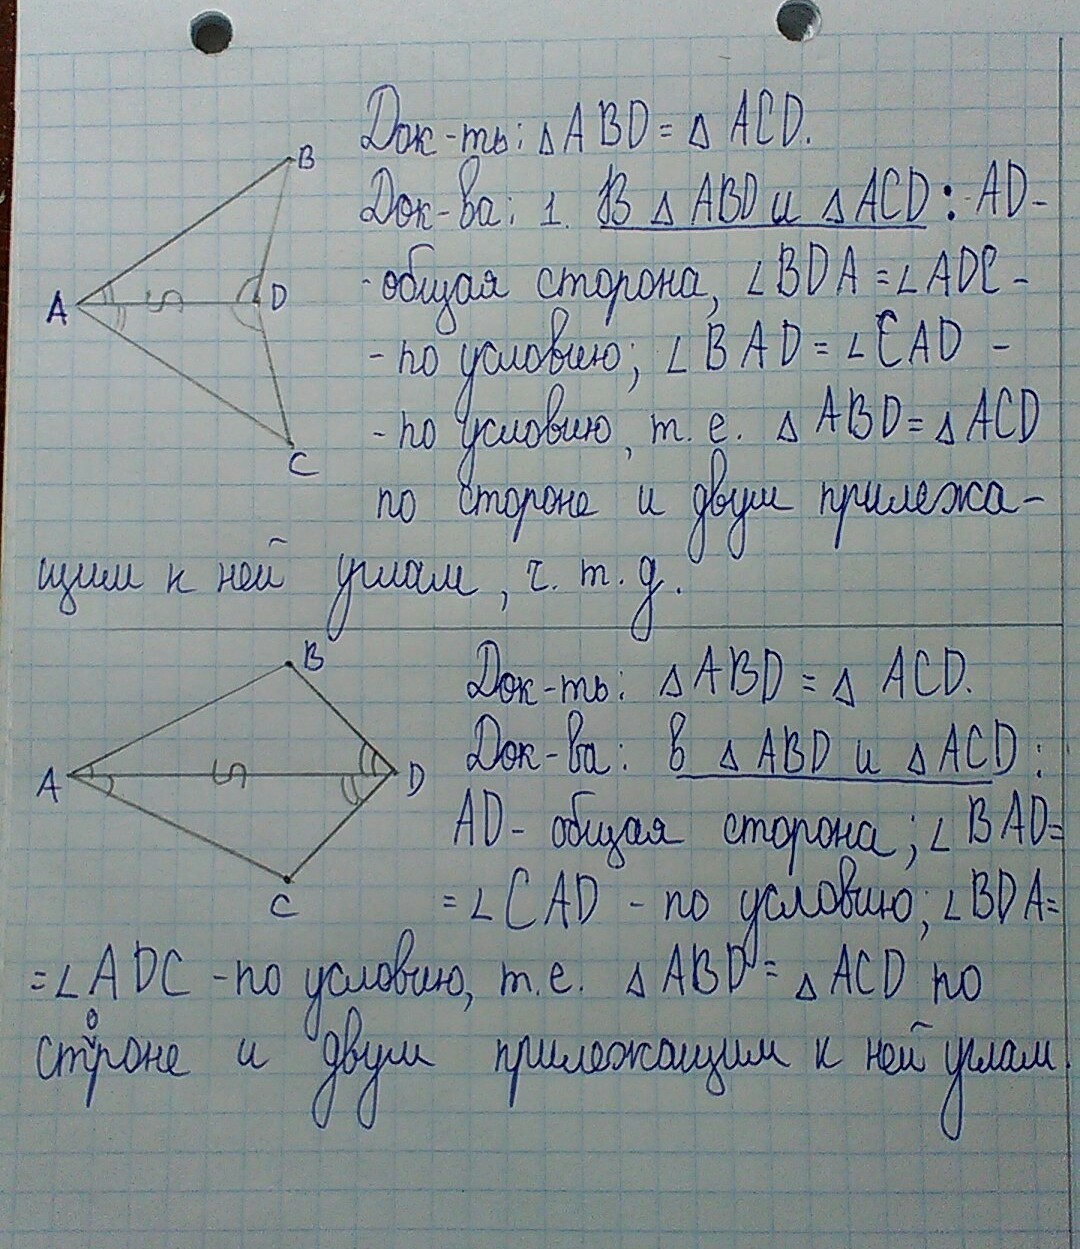 Док-ть: △ABD = △ACD.
Док-ва: 1. В △ABD и △ACD: AD-
-общая сторона, ∠BDA = ∠ADC -
- по условию; ∠BAD = ∠CAD -
- по условию, т.е. △ABD = △ACD
по стороне и двум прилежа-
щим к ней углам, ч.т.д.
B
A
D
C
Док-ть: △ABD = △ACD.
Док-ва: в △ABD и △ACD:
AD - общая сторона; ∠BAD=
= ∠CAD - по условию; ∠BDA=
= ∠ADC - по условию, т.е. △ABD = △ACD по
стороне и двум прилежащим к ней углам.
B
A
D
C